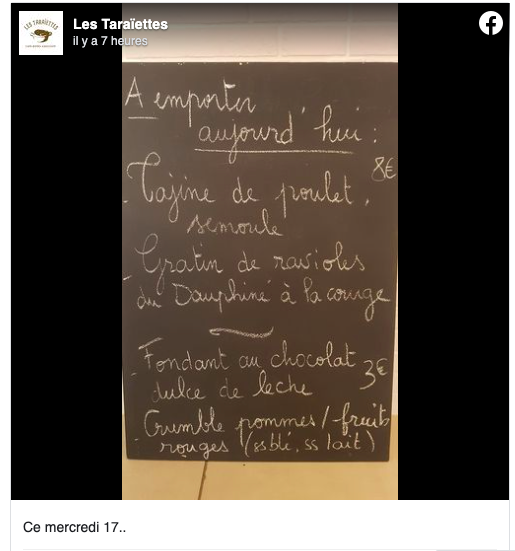 LES TARAÏETTES
Les Taraïettes
il y a 7 heures
A emporter
aujourd'hui :
8€
- Tajine de poulet,
semoule
- Gratin de ravioles
du Dauphiné à la courge
- Fondant au chocolat
3€
dulce de leche
- Crumble pommes / fruits
rouges (ss blé, ss lait)
Ce mercredi 17..